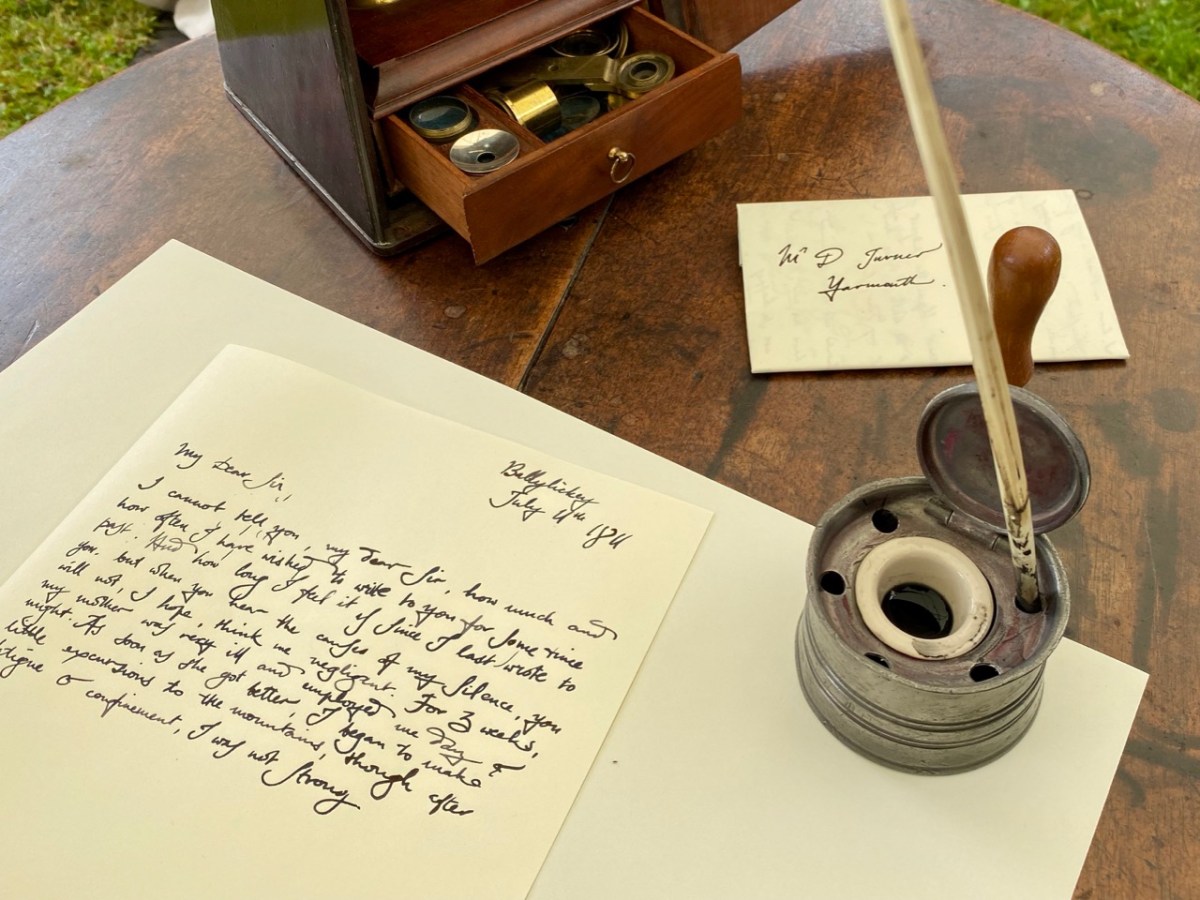 Mr D Turner
Yarmouth.
Ballylickey
July 4th 1811
My Dear Sir,
I cannot tell you, my Dear Sir, how much and
how often I have wished to write to you for some time
past. And how long I feel it is since I last wrote to
you, but when you hear the causes of my silence, you
will not, I hope, think me negligent. For 3 weeks,
my mother was very ill and employed me Day &
night. As soon as she got better, I began to make
little excursions to the mountains, though after
tigue & confinement, I was not strong